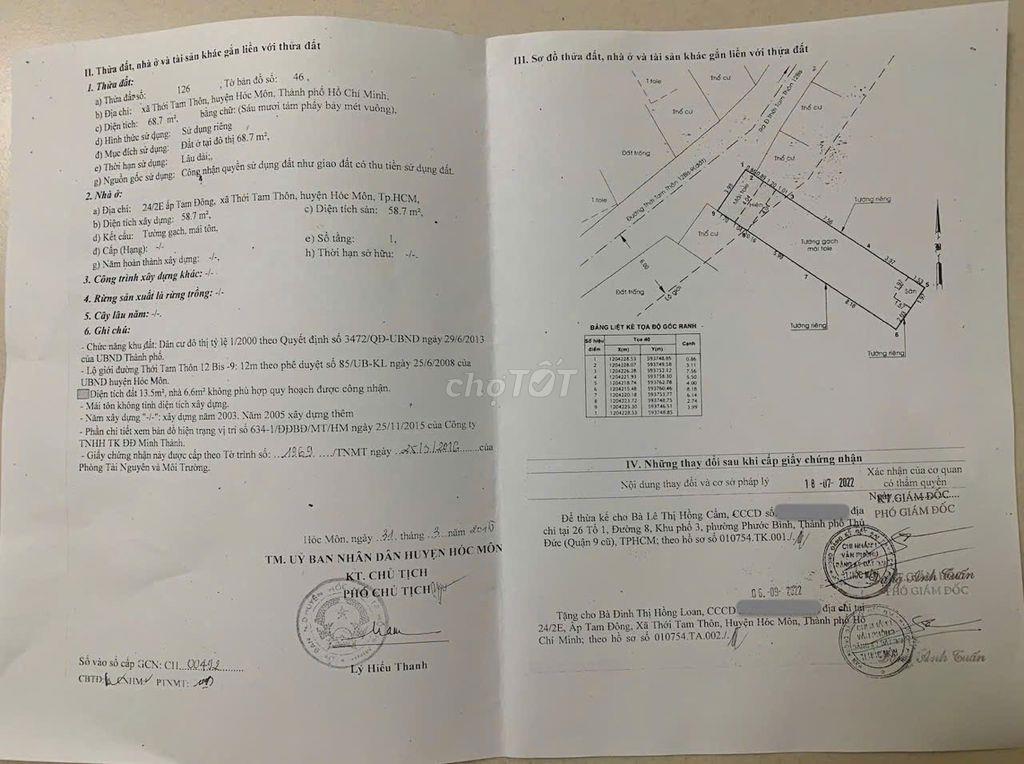 II. Thửa đất, nhà ở và tài sản khác gắn liền với thửa đất
1. Thửa đất:
a) Thửa đất số: 126 , Tờ bản đồ số: 46 ,
b) Địa chỉ: xã Thới Tam Thôn, huyện Hóc Môn, Thành phố Hồ Chí Minh,
c) Diện tích: 68.7 m², bằng chữ: (Sáu mươi tám phẩy bảy mét vuông),
d) Hình thức sử dụng: Sử dụng riêng
đ) Mục đích sử dụng: Đất ở tại đô thị 68.7 m²,
e) Thời hạn sử dụng: Lâu dài;,
g) Nguồn gốc sử dụng: Công nhận quyền sử dụng đất như giao đất có thu tiền sử dụng đất.
2. Nhà ở:
a) Địa chỉ: 24/2E ấp Tam Đông, xã Thới Tam Thôn, huyện Hóc Môn, Tp.HCM,
b) Diện tích xây dựng: 58.7 m², c) Diện tích sàn: 58.7 m²,
d) Kết cấu: Tường gạch, mái tôn,
đ) Cấp (Hạng): -/- e) Số tầng: 1,
g) Năm hoàn thành xây dựng: -/-, h) Thời hạn sở hữu: -/-.
3. Công trình xây dựng khác: -/-
4. Rừng sản xuất là rừng trồng: -/-
5. Cây lâu năm: -/-.
6. Ghi chú:
- Chức năng khu đất: Dân cư đô thị tỷ lệ 1/2000 theo Quyết định số 3472/QĐ-UBND ngày 29/6/2013
của UBND Thành phố.
- Lộ giới đường Thới Tam Thôn 12 Bis -9: 12m theo phê duyệt số 85/UB-KL ngày 25/6/2008 của
UBND huyện Hóc Môn.
Diện tích đất 13.5m², nhà 6.6m² không phù hợp quy hoạch được công nhận.
- Mái tôn không tính diện tích xây dựng.
- Năm xây dựng "-/-": xây dựng năm 2003. Năm 2005 xây dựng thêm
- Phần chi tiết xem bản đồ hiện trạng vị trí số 634-1/ĐĐBĐ/MT/HM ngày 25/11/2015 của Công ty
TNHH TK ĐĐ Minh Thành.
- Giấy chứng nhận này được cấp theo Tờ trình số: ...1969.../TNMT ngày ..25/3/2016......của
Phòng Tài Nguyên và Môi Trường.
Hóc Môn, ngày .31. tháng ..3.. năm 2016
TM. UỶ BAN NHÂN DÂN HUYỆN HÓC MÔN
KT. CHỦ TỊCH
PHÓ CHỦ TỊCH
Lý Hiếu Thanh
Số vào sổ cấp GCN: CH....00492
CBTĐ: PTNMT:
III. Sơ đồ thửa đất, nhà ở và tài sản khác gắn liền với thửa đất
T tole
Thổ cư
Thổ cư
Đất trống
Thổ cư
T tole
Đường Thới Tam Thôn 12Bis
Mái tole
Tường riêng
Thổ cư
Tường gạch
mái tole
Sân
6.00
Đất trống
Lộ giới
Tường riêng
Tường riêng
BẢNG LIỆT KÊ TỌA ĐỘ GÓC RANH
Số hiệu điểm Tọa độ Cạnh
X(m) Y(m)
1 1204228.53 593748.85 0.86
2 1204228.07 593749.58 5.11
3 1204226.28 593752.12 7.56
4 1204221.93 593758.30 5.50
5 1204218.74 593762.78 4.00
6 1204215.48 593760.46 8.18
7 1204220.18 593753.77 6.14
8 1204223.72 593748.75 2.74
9 1204225.30 593746.51 3.99
1 1204228.53 593748.85
chợTỐT
IV. Những thay đổi sau khi cấp giấy chứng nhận
Nội dung thay đổi và cơ sở pháp lý
Xác nhận của cơ quan
có thẩm quyền
18-07-2022
Ngày
KT.GIÁM ĐỐC
PHÓ GIÁM ĐỐC
Để thừa kế cho Bà Lê Thị Hồng Cẩm, CCCD số địa
chỉ tại 26 Tổ 1, Đường 8, Khu phố 3, phường Phước Bình, Thành phố Thủ
Đức (Quận 9 cũ), TPHCM; theo hồ sơ số 010754.TK.001./.
CHI NHÁNH
VĂN PHÒNG
ĐĂNG KÝ ĐẤT ĐAI
H.HÓC MÔN
Đặng Anh Tuấn
PHÓ GIÁM ĐỐC
06-09-2022
Tặng cho Bà Đinh Thị Hồng Loan, CCCD địa chỉ tại
24/2E, Ấp Tam Đông, Xã Thới Tam Thôn, Huyện Hóc Môn, Thành phố Hồ
Chí Minh; theo hồ sơ số 010754.TA.002./.
Đặng Anh Tuấn